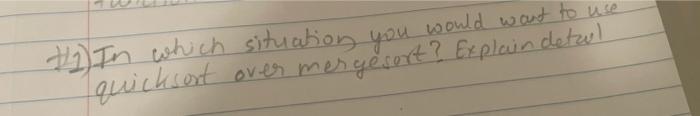 #1) In which situation you would want to use
quicksort over mergesort? Explain detail